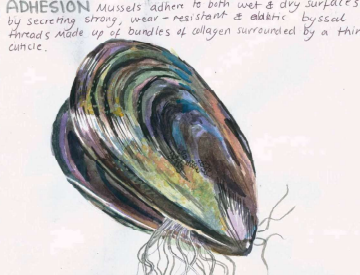 ADHESION Mussels adhere to both wet & dry surfaces
by secreting strong, wear-resistant & elastic byssal
threads made up of bundles of collagen surrounded by a thin
cuticle.